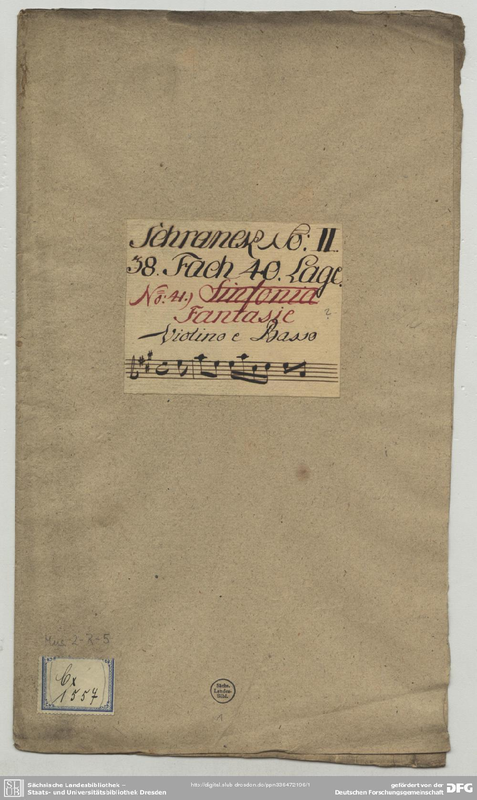 Schranck No: II.
38. Fach 40. Lage.
No: 41.) Sinfonia
Fantasie
?
Violino e Basso
Mus 2-R-5
Cx
1557
Sächs.
Landes-
Bibl.
1
Sächsische Landesbibliothek –
Staats- und Universitätsbibliothek Dresden
http://digital.slub-dresden.de/ppn335472109/1
gefördert von der
Deutschen Forschungsgemeinschaft
DFG